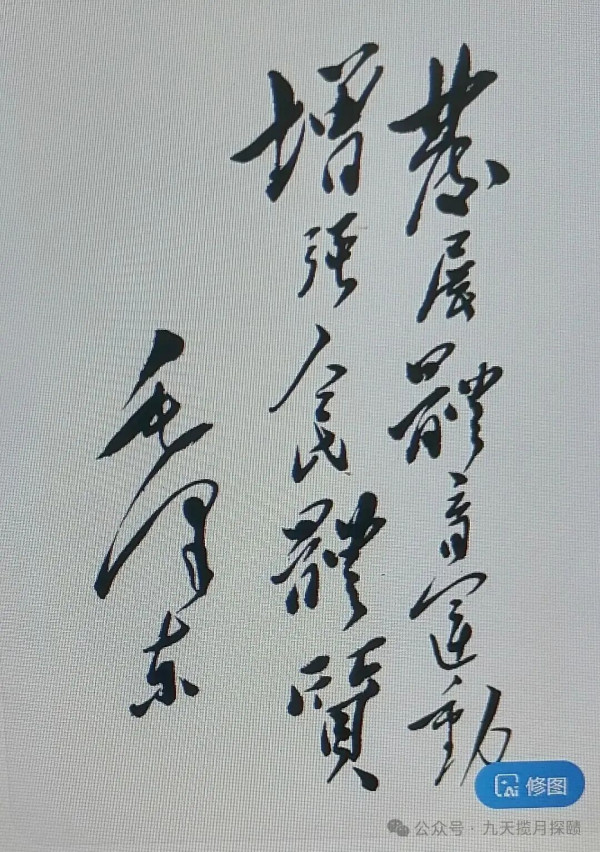 發展體育運動
增强人民體質
毛泽东
Ai 修图
公众号 · 九天揽月探颐